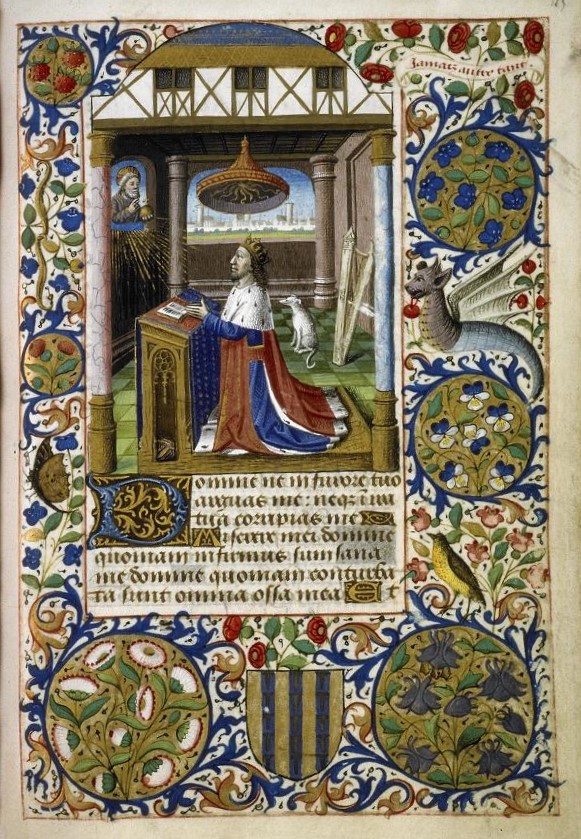 Jamais autre
Domine ne in furore tuo
arguas me: neqz in ira
tua corripias me
Miserere mei domine
quoniam infirmus sum sana
me domine quoniam conturba
ta sunt omnia ossa mea Et